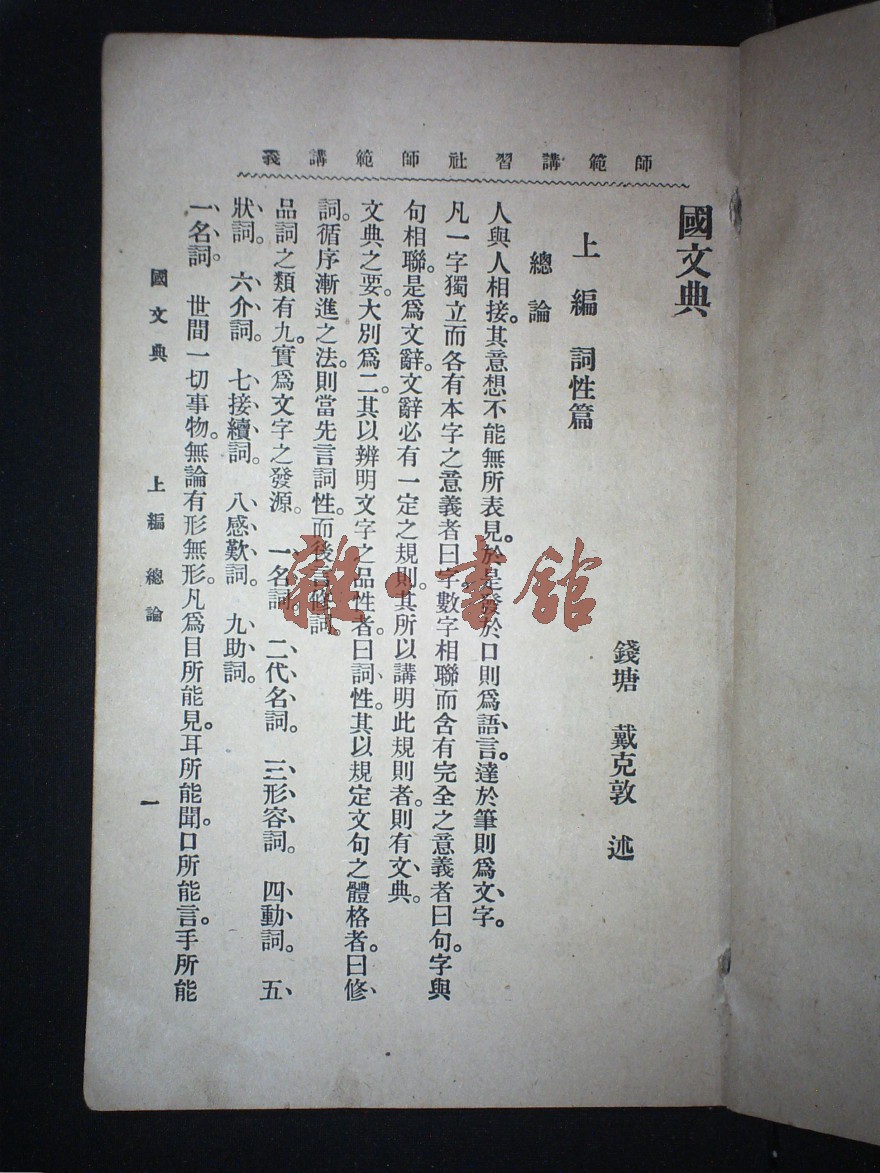 師範講習社師範講義
國文典
錢塘 戴克敦 述
上編 詞性篇
總論
人與人相接。其意想不能無所表見。於是發於口則爲語言。達於筆則爲文字。
凡一字獨立而各有本字之意義者曰字。數字相聯而含有完全之意義者曰句。字與
句相聯。是爲文辭。文辭必有一定之規則。其所以講明此規則者。則有文典。
文典之要。大別爲二。其以辨明文字之品性者。曰詞性。其以規定文句之體格者。曰修
詞。循序漸進之法。則當先言詞性。而後言修詞。
品詞之類有九。實爲文字之發源。 一名詞。 二代名詞。 三形容詞。 四動詞。 五
狀詞。 六介詞。 七接續詞。 八感歎詞。 九助詞。
一、名詞。 世間一切事物。無論有形無形。凡爲目所能見。耳所能聞。口所能言。手所能
國文典 上編 總論 一
雜·書館